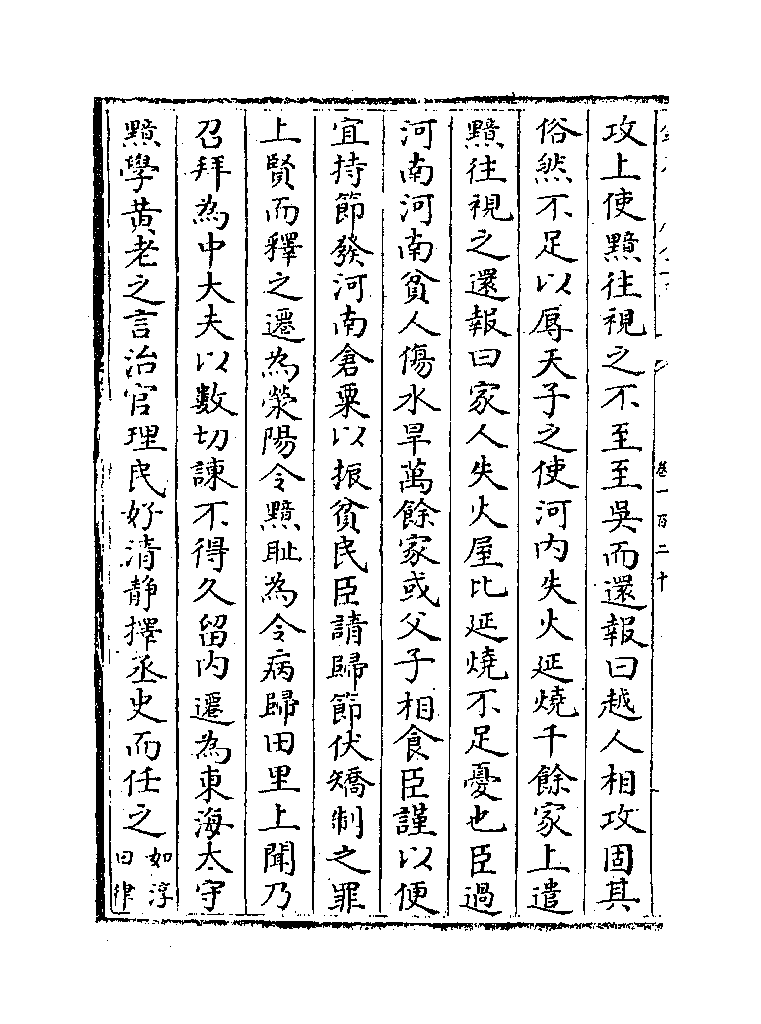 卷一百二十
攻上使黯往視之不至至吳而還報曰越人相攻固其
俗然不足以辱天子之使河内失火延燒千餘家上遣
黯往視之還報曰家人失火屋比延燒不足憂也臣過
河南河南貧人傷水旱萬餘家或父子相食臣謹以便
宜持節發河南倉粟以振貧民臣請歸節伏矯制之罪
上賢而釋之遷為滎陽令黯恥為令病歸田里上聞乃
召拜為中大夫以數切諫不得久留内遷為東海太守
黯學黃老之言治官理民好清靜擇丞史而任之如淳
曰律